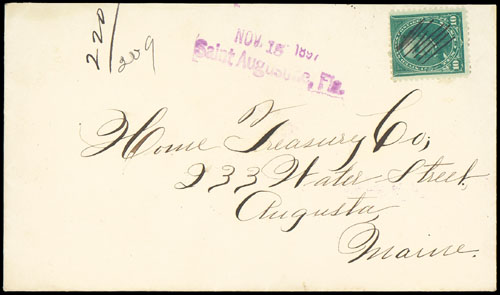 220
209
NOV 16 1897
Saint Augustine, Fla.
10 10
Home Treasury Co,
233 Water Street
Augusta
Maine.